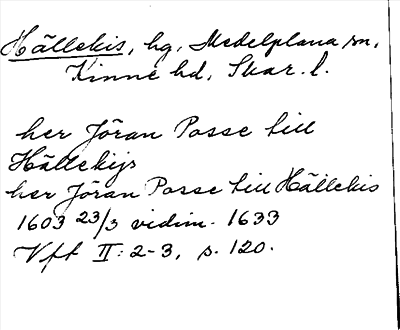 Hällekis, hg, Medelplana sn,
Kinne hd, Skar. l.
her Jöran Posse till
Hällekijs
her Jöran Posse till Hällekis
1603 23/3 vidim. 1633
Vft II: 2-3, s. 120.